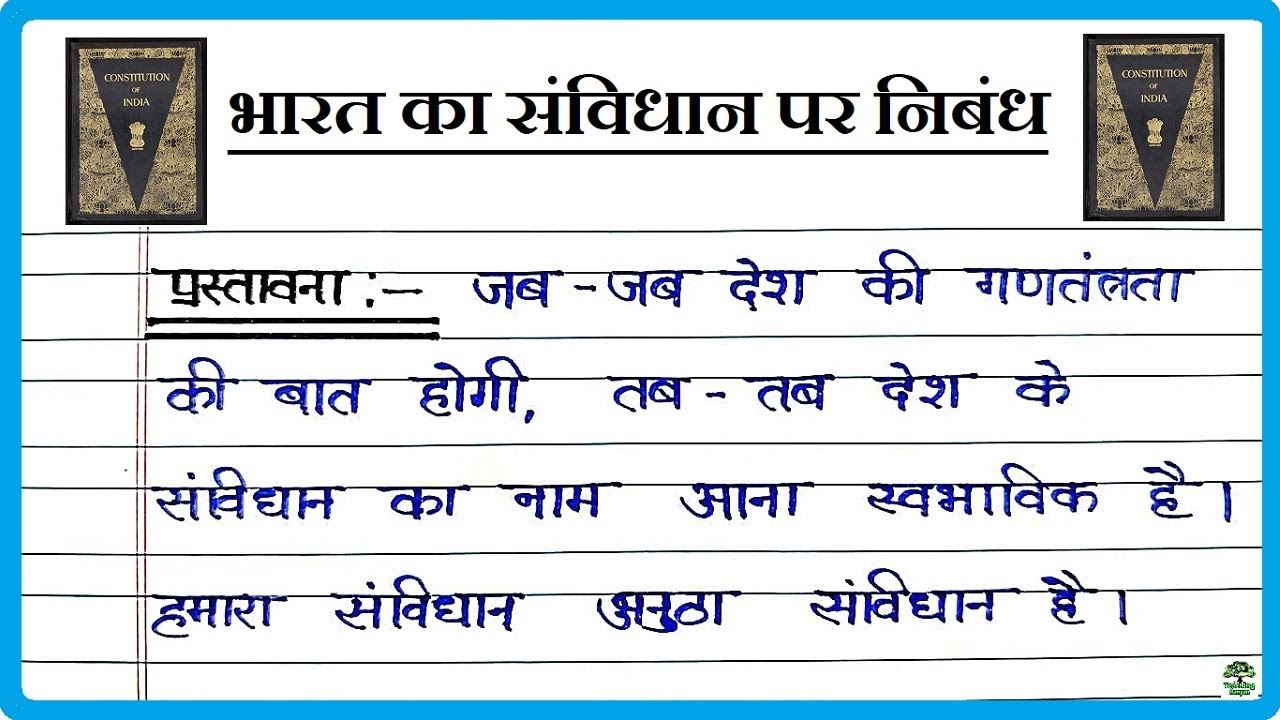 CONSTITUTION
OF
INDIA
भारत का संविधान पर निबंध
CONSTITUTION
OF
INDIA
प्रस्तावना :- जब - जब देश की गणतंत्रता
की बात होगी, तब - तब देश के
संविधान का नाम आना स्वभाविक है।
हमारा संविधान अनुठा संविधान है।